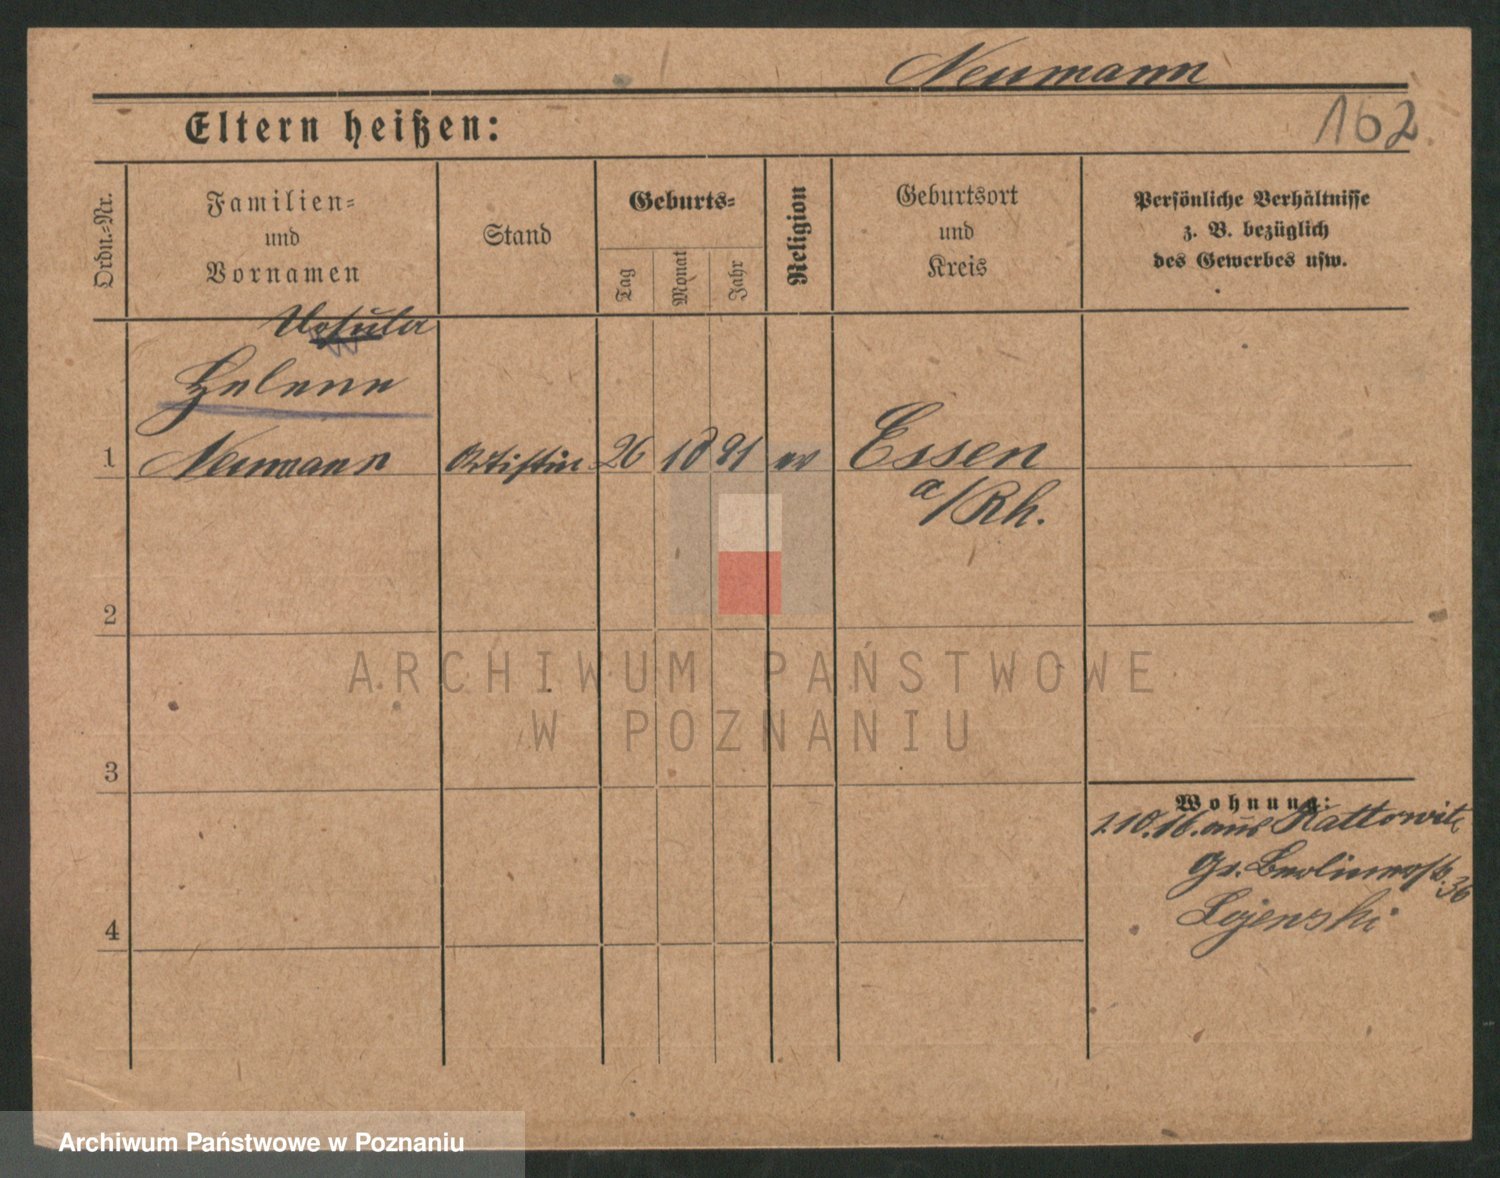 Neumann
162
Eltern heißen:
Ordn.-Nr.
Familien-
und
Vornamen
Stand
Geburts-
Tag
Monat
Jahr
Religion
Geburtsort
und
Kreis
Persönliche Verhältnisse
z. B. bezüglich
des Gewerbes usw.
Ursula
Helene
1 Neumann Artistin 26 10 91 ev Essen
a/Rh.
2
3
4
Wohnung:
1.10.16. aus Kattowitz
Gr. Berlinerstr. 36
Lojenski
ARCHIWUM PAŃSTWOWE
W POZNANIU
Archiwum Państwowe w Poznaniu